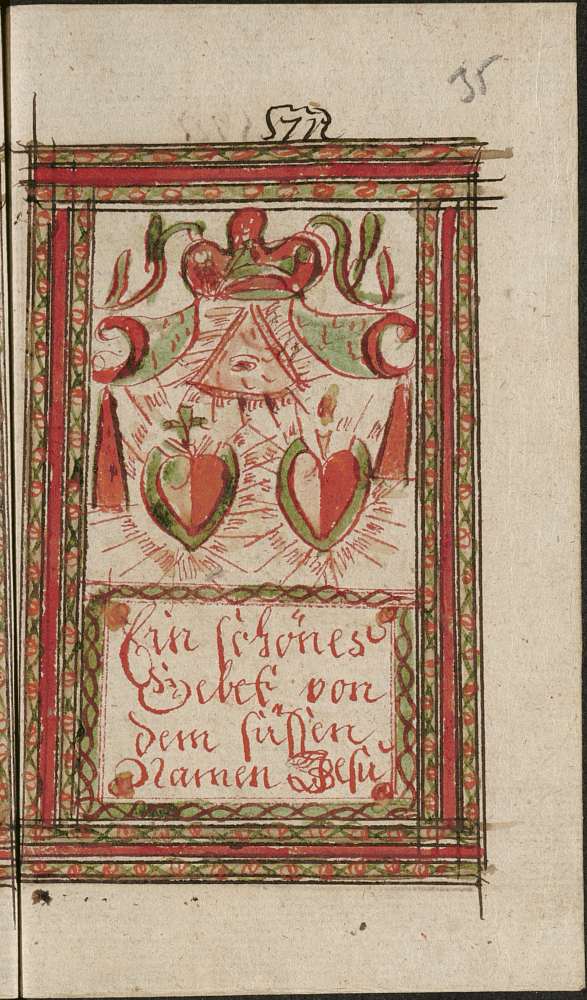 35
Ein schönes
Gebet von
dem süssen
Namen Jesu